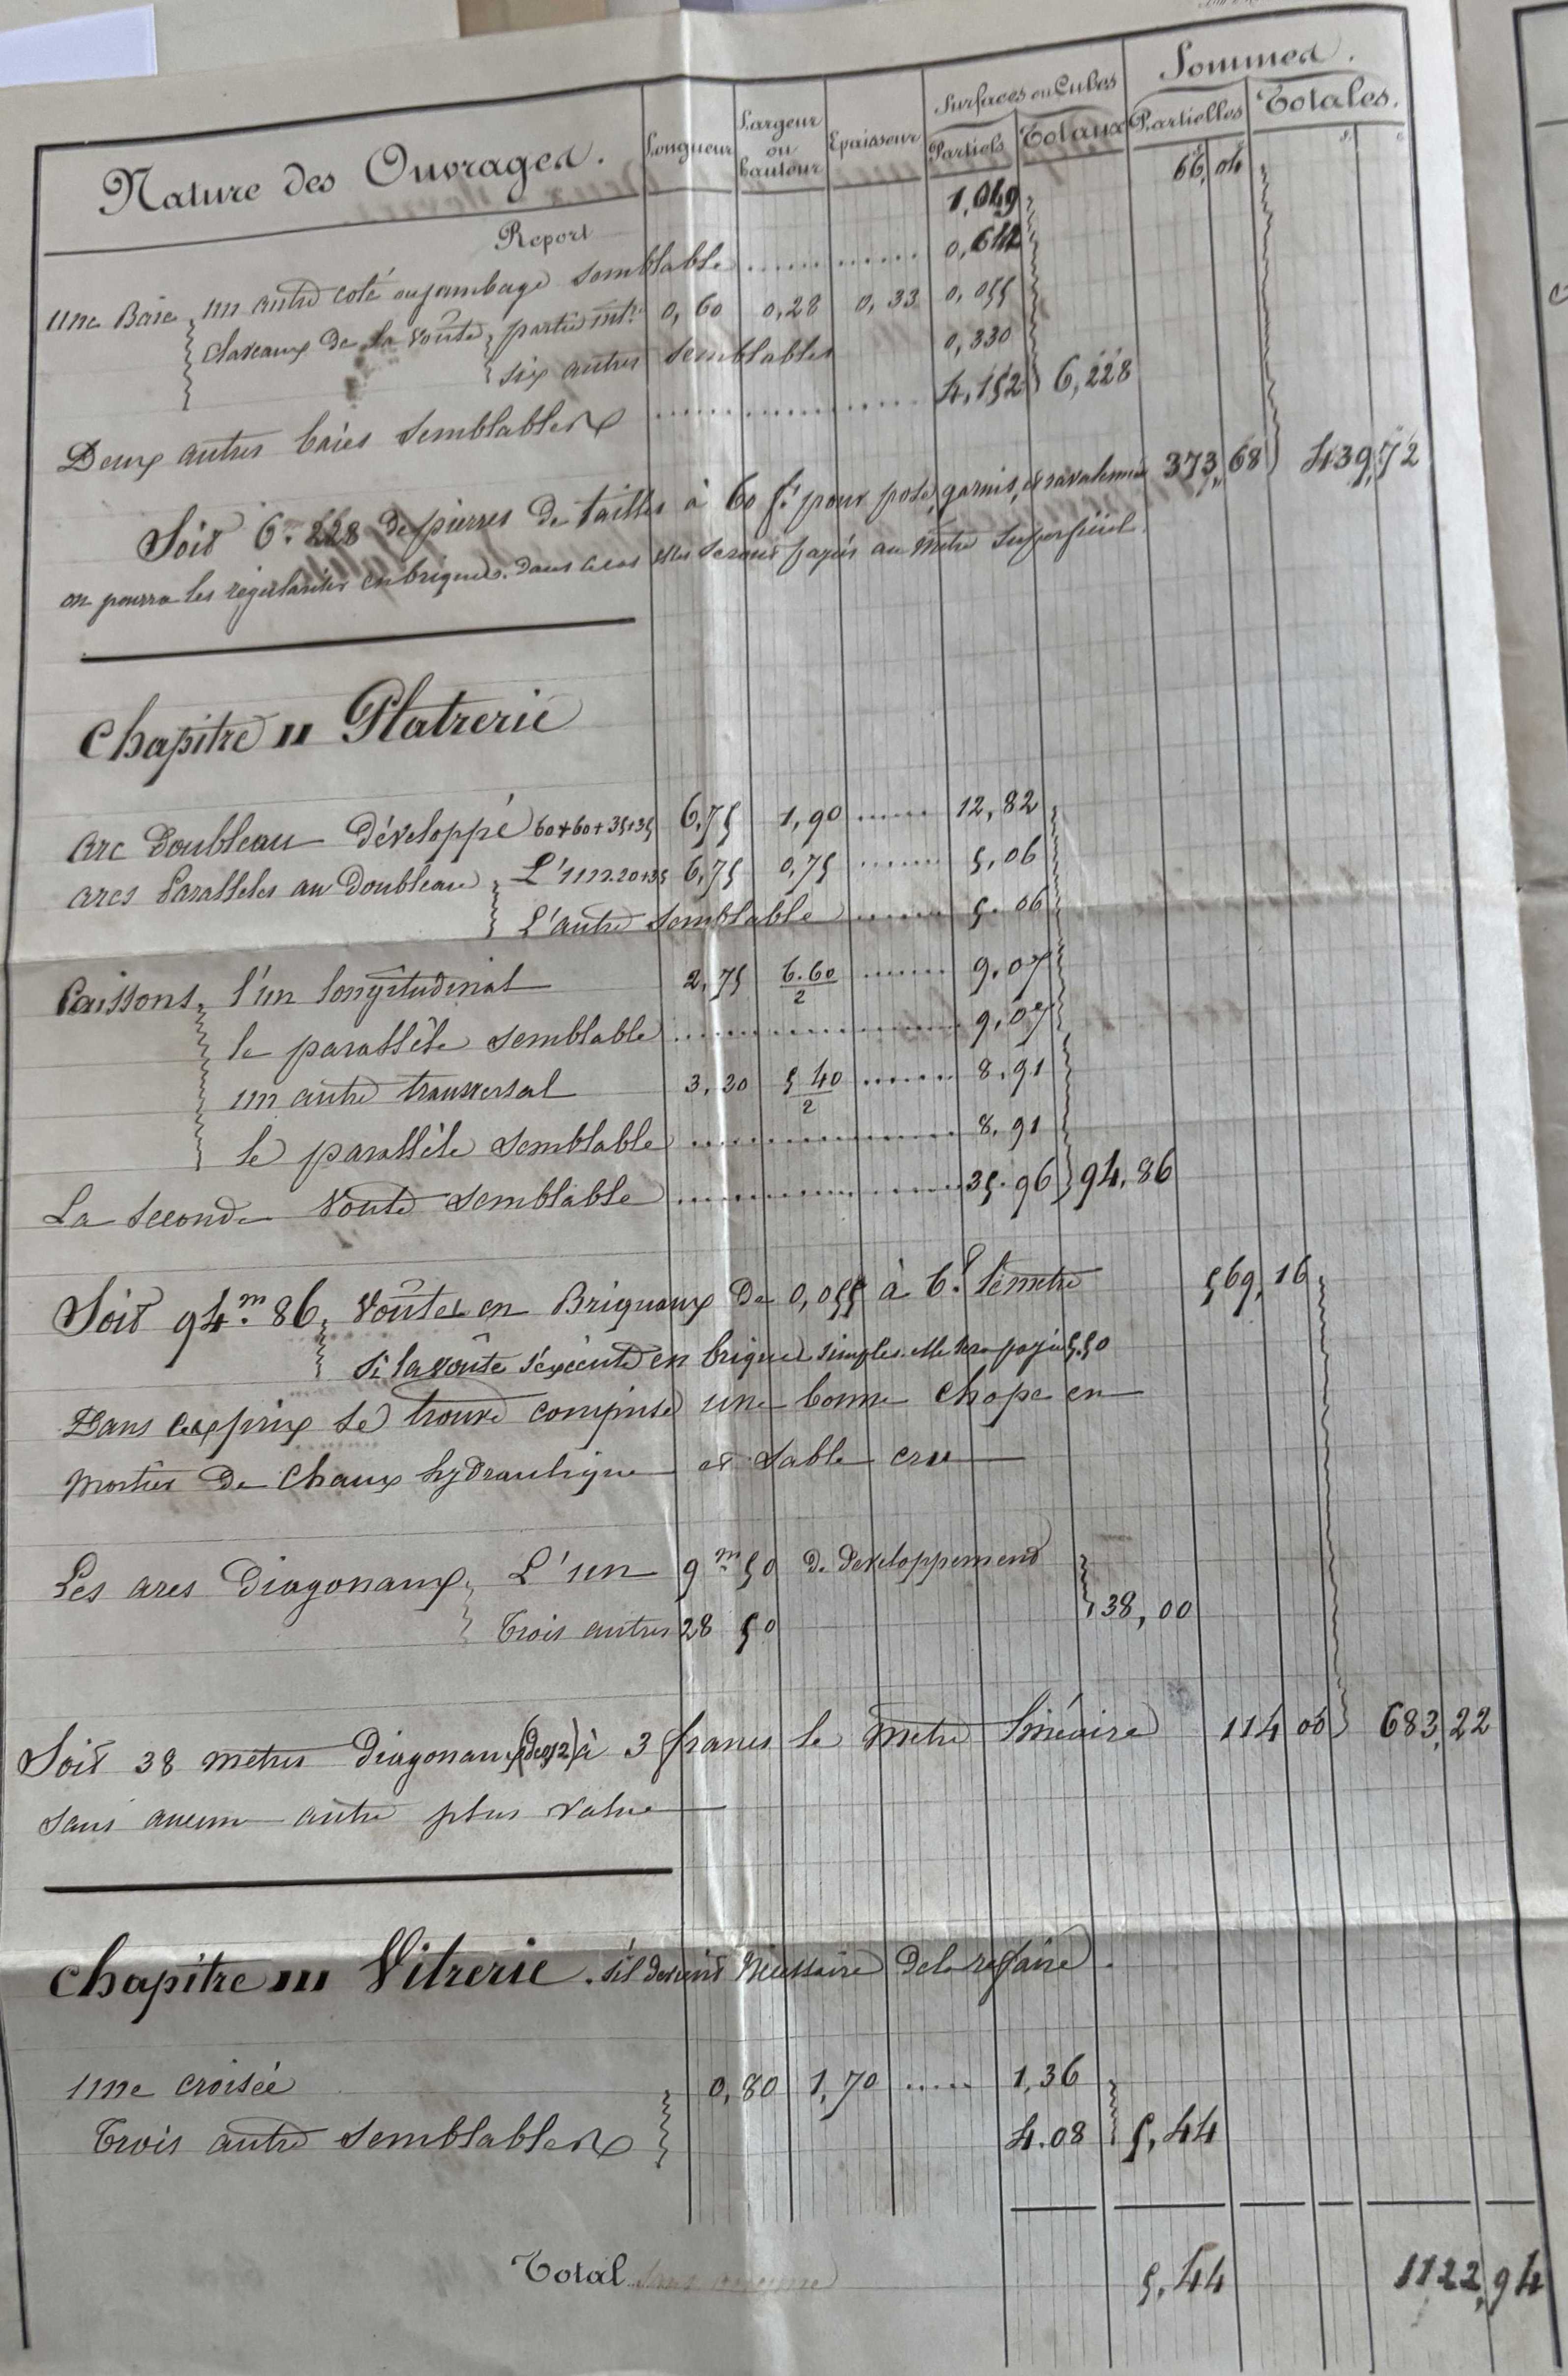 Nature des Ouvrages. Longueur Largeur ou hauteur Epaisseur Surfaces ou Cubes Partiels Totaux Sommes. Partielles Totales.
Report 1,049 66,04
Une Baie un autre coté ou jambage semblable ............ 0,642
Claveaux de la voûte partie intre 0,60 0,28 0,33 0,055
six autres semblables 0,330
Deux autres baies semblables ............ 4,152 6,228
Soit 6. 228 de pierres de tailles à 60 f. pour pose, garnis, et ravalement 373,68 439,72
on pourra les régulariser en briques. Dans ce cas elles seront payées au mètre superficiel.
Chapitre II Platrerie
Arc Doubleau Développé 60+60+35+35 6,75 1,90 ...... 12,82
Arcs Paralleles au Doubleau L'un 20+35 6,75 0,75 ...... 5,06
L'autre semblable ...... 5.06
Caissons l'un longitudinal 2,75 6.60/2 ...... 9,07
le parallèle semblable ............ 9,07
un autre transversal 3,30 5 40/2 ...... 8,91
le parallèle semblable ............ 8,91
La seconde Voute semblable ............ 35.96 94,86
Soit 94.m 86 Voûtes en Briquaux de 0,055 à 6.f le metre 569,16
Si la voûte s'exécute en briques simples elle sera payée 5.50
Dans ces prix se trouve comprise une bonne chape en
Mortier de Chaux hydraulique et sable cru
Les arcs Diagonaux L'un 9m 50 de developpement
Trois autres 28 50 38,00
Soit 38 metres Diagonaux à 3 francs le metre linéaire 114 00 683,22
sans aucune autre plus value
Chapitre III Vitrerie. s'il devient Nécessaire de la refaire.
Une croisée 0,80 1,70 ...... 1,36
Trois autre semblables 4.08 5,44
Total 5,44 1122,94